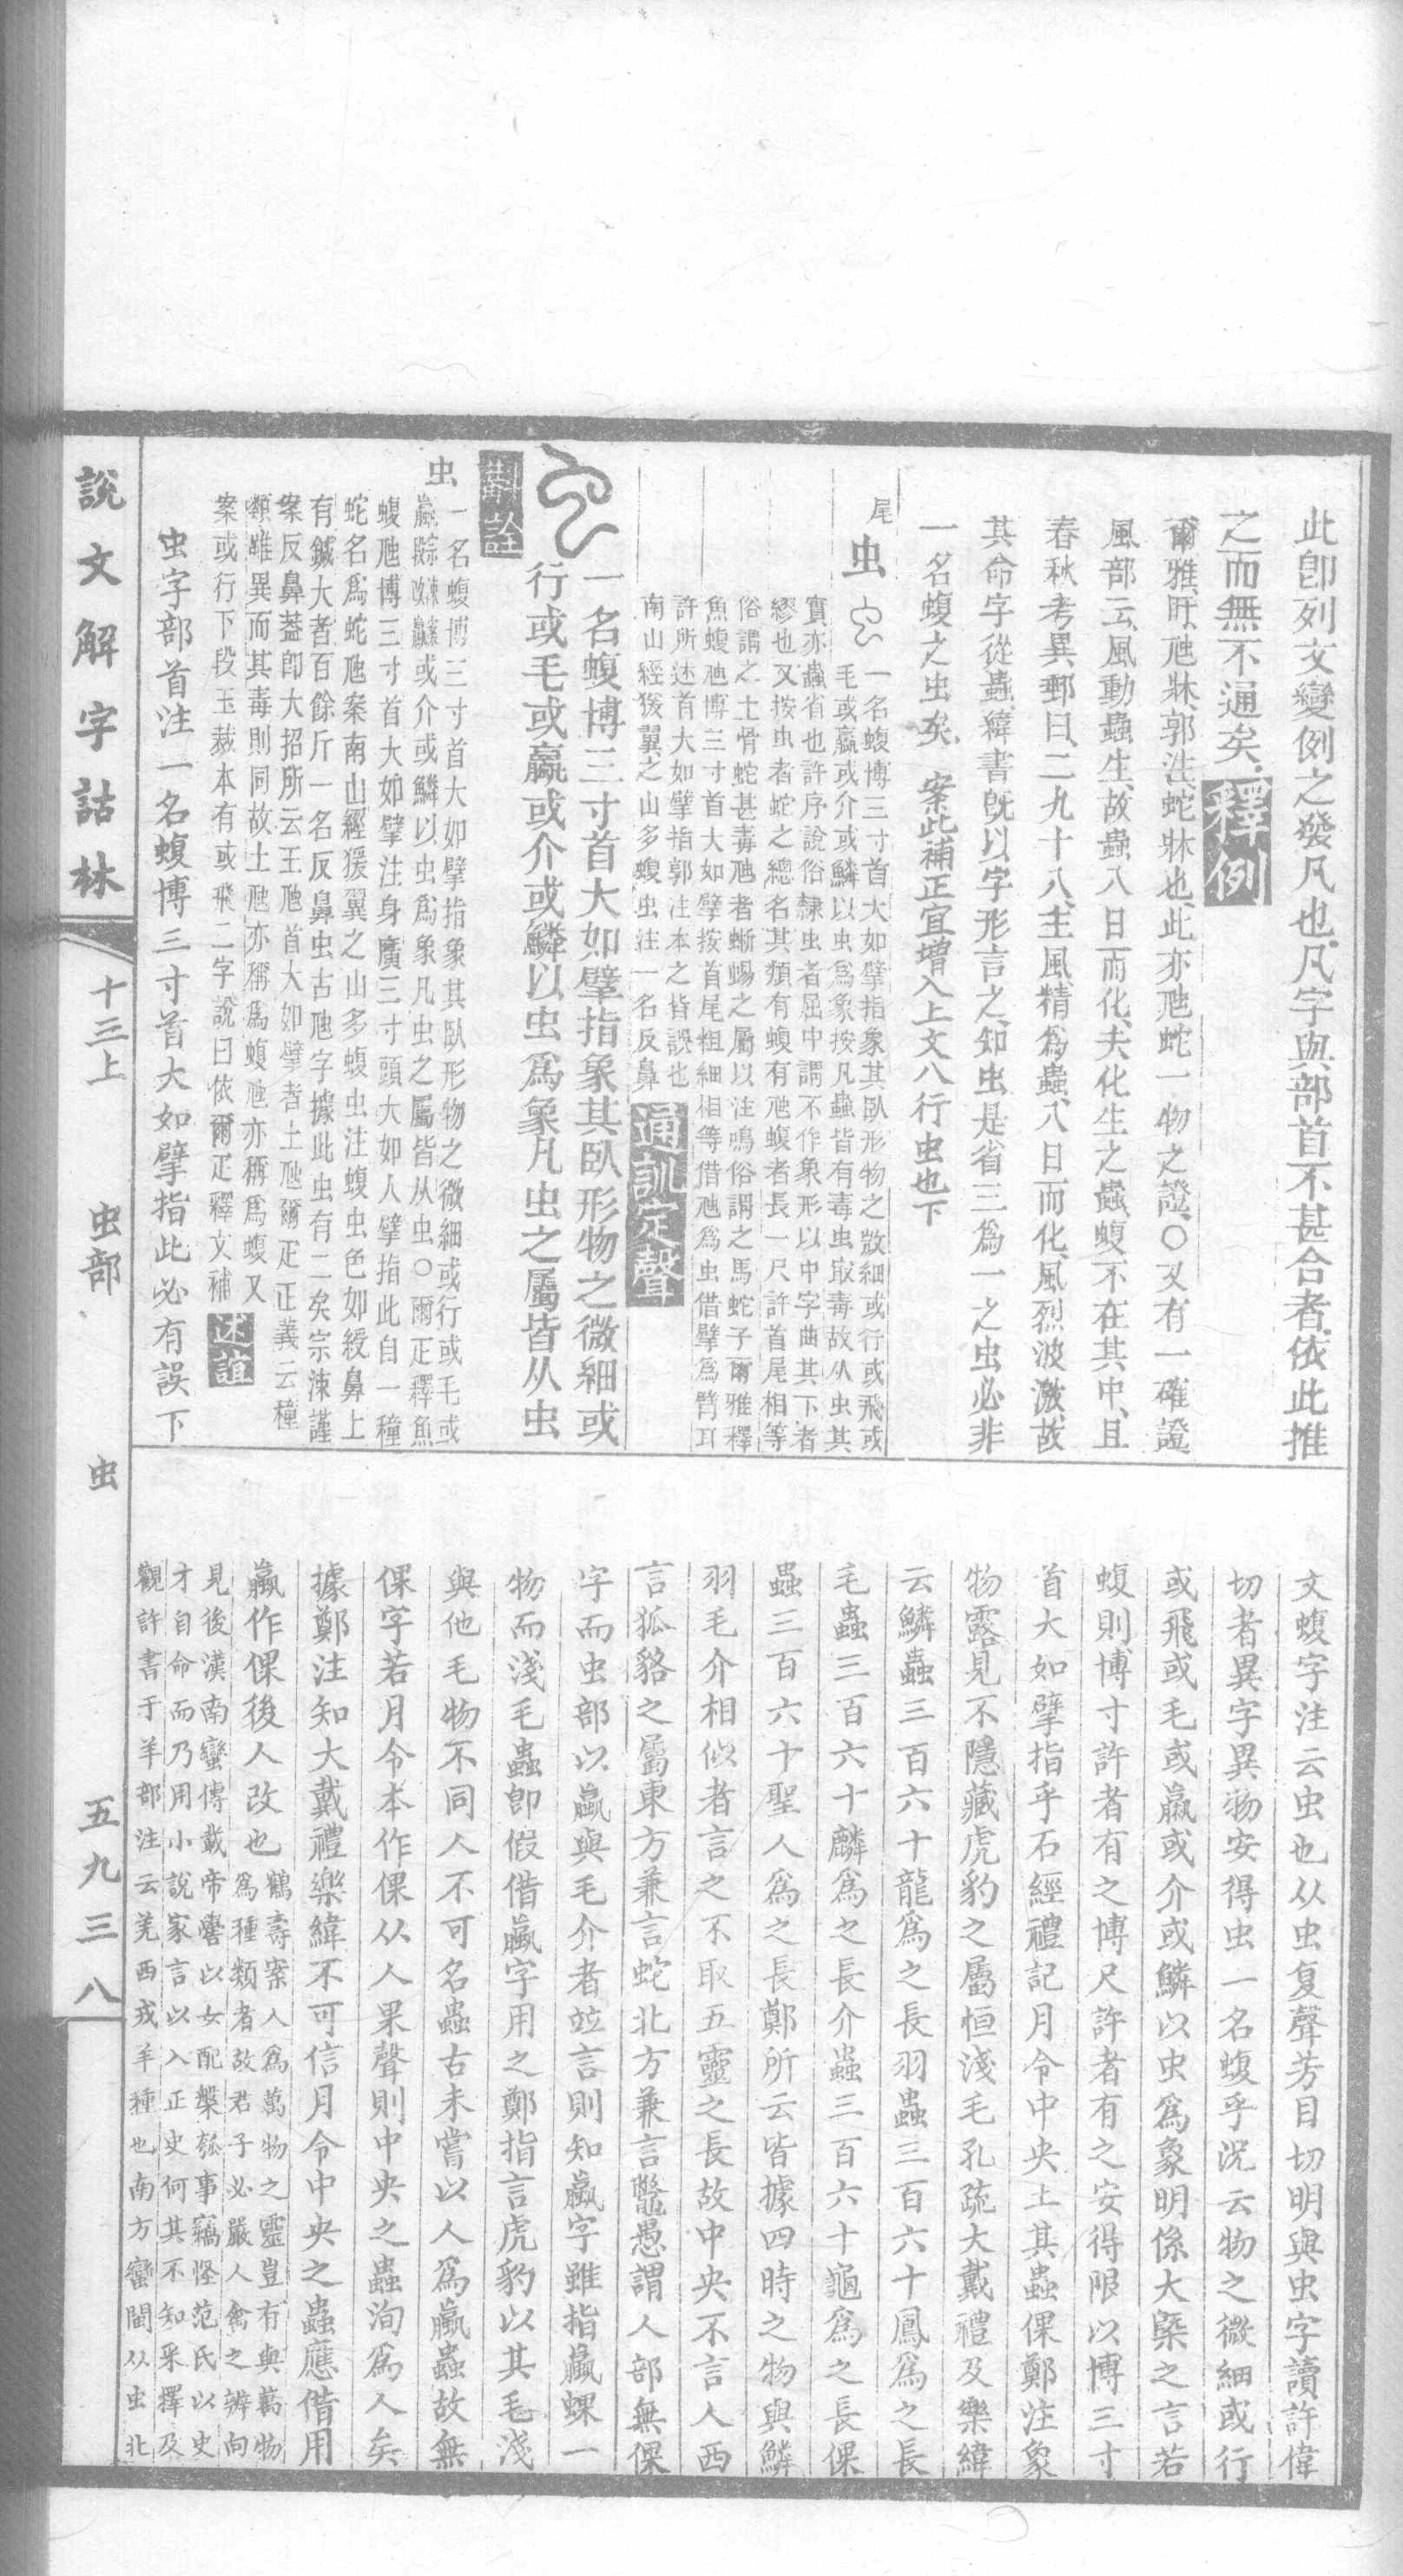 此卽列文變例之發凡也凡字與部首不甚合者依此推
之而無不通矣釋例
爾雅盰虺牀郭注蛇牀也此亦虺蛇一物之證〇又有一確證
風部云風動蟲生故蟲八日而化夫化生之蟲蝮不在其中且
春秋考異郵曰二九十八主風精爲蟲八日而化風烈波激故
其命字從蟲緯書旣以字形言之知虫是省三爲一之虫必非
一名蝮之虫矣 案此補正宜增入上文八行虫也下
尾虫
一名蝮博三寸首大如擘指象其臥形物之㪣細或行或飛或
毛或蠃或介或鱗以虫爲象按凡蟲皆有毒虫取毒故从虫其
實亦蟲省也許序說俗隸虫者屈中謂不作象形以中字曲其下者
繆也又按虫者蛇之總名其𩔖有蝮有虺蝮者長一尺許首尾相等
俗謂之土骨蛇甚毒虺者蜥蜴之屬以注鳴俗謂之馬蛇子爾雅釋
魚蝮虺博三寸首大如擘按首尾粗細相等借虺爲虫借擘爲臂耳
許所述首大如擘指郭注本之皆誤也
南山經猨翼之山多蝮虫注一名反鼻通訓定聲
一名蝮博三寸首大如擘指象其臥形物之微細或
行或毛或蠃或介或鱗以虫爲象凡虫之屬皆从虫
斠詮
虫一名蝮博三寸首大如擘指象其臥形物之微細或行或毛或
蠃或介或鱗以虫爲象凡虫之屬皆从虫〇爾疋釋魚
蝮虺博三寸首大如擘注身廣三寸頭大如人擘指此自一種
蛇名爲蛇虺案南山經猨翼之山多蝮虫注蝮虫色如綬鼻上
有鍼大者百餘斤一名反鼻虫古虺字據此虫有二矣宗涑謹
案反鼻葢卽大招所云王虺首大如擘者土虺爾疋正義云種
類雖異而其毒則同故土虺亦稱爲蝮虺亦稱爲蝮又
案或行下段玉裁本有或飛二字說曰依爾疋釋文補述誼
虫字部首注一名蝮博三寸首大如擘指此必有誤下
文蝮字注云虫也从虫复聲芳目切明與虫字讀許偉
切者異字異物安得虫一名蝮乎况云物之微細或行
或飛或毛或蠃或介或鱗以虫爲象明係大槩之言若
蝮則博寸許者有之博尺許者有之安得限以博三寸
首大如擘指乎石經禮記月令中央土其蟲倮鄭注象
物露見不隱藏虎豹之屬恒淺毛孔疏大戴禮及樂緯
云鱗蟲三百六十龍爲之長羽蟲三百六十鳳爲之長
毛蟲三百六十麟爲之長介蟲三百六十龜爲之長倮
蟲三百六十聖人爲之長鄭所云皆據四時之物與鱗
羽毛介相似者言之不取五靈之長故中央不言人西
言狐貉之屬東方兼言蛇北方兼言鼈愚謂人部無倮
字而虫部以蠃與毛介者竝言則知蠃字雖指蠃蜾一
物而淺毛蟲卽假借蠃字用之鄭指言虎豹以其毛淺
與他毛物不同人不可名蟲古未嘗以人爲蠃蟲故無
倮字若月令本作倮从人果聲則中央之蟲洵爲人矣
據鄭注知大戴禮樂緯不可信月令中央之蟲應借用
蠃作倮後人改也鶴壽案人爲萬物之靈豈有與萬物
爲種類者故君子必嚴人禽之辨向
見後漢南蠻傳載帝嚳以女配槃瓠事竊怪范氏以史
才自命而乃用小說家言以入正史何其不知采擇及
觀許書于羊部注云羌西戎羊種也南方蠻閩从虫北
說文解字詁林
十三上
虫部
虫
五九三八